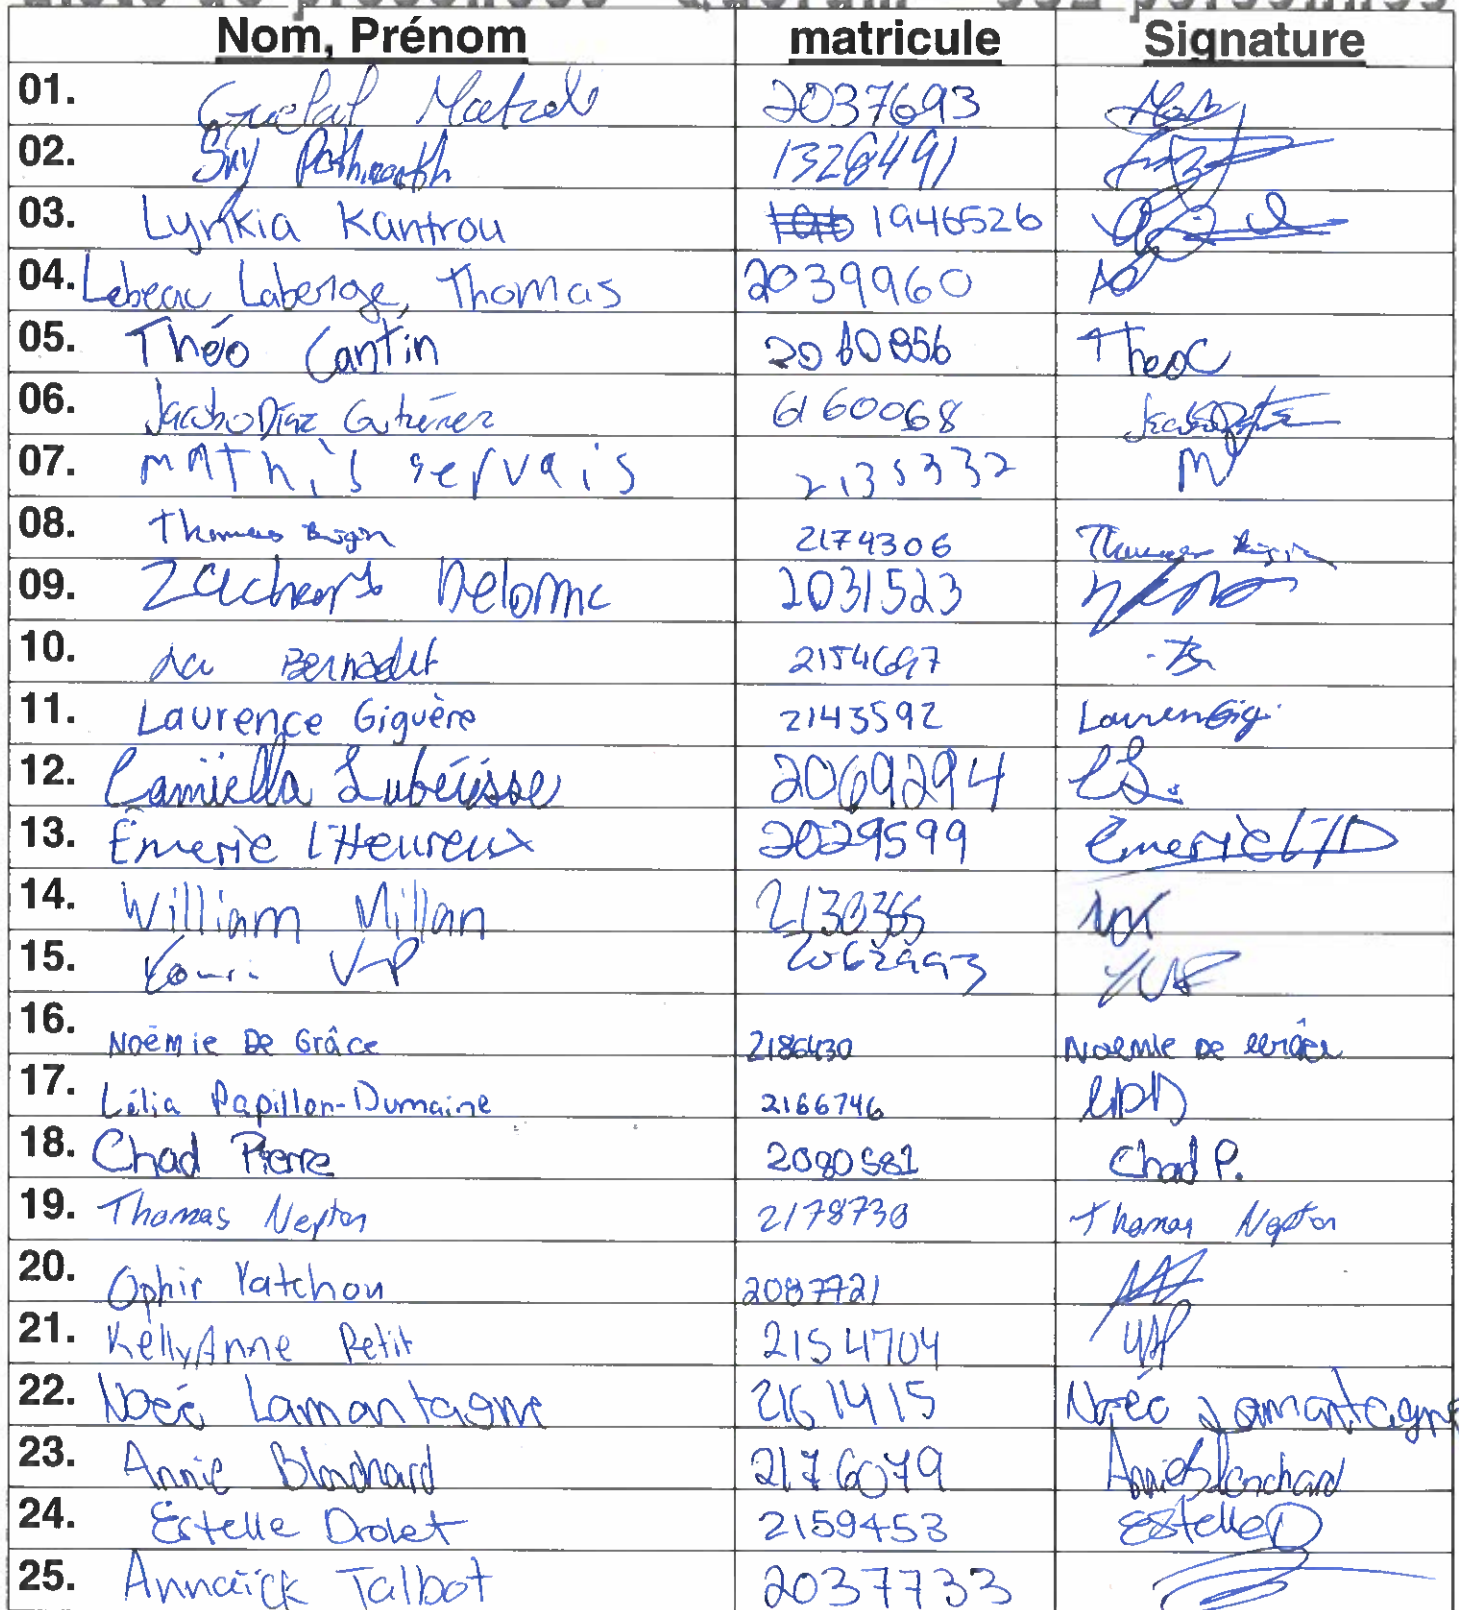 Liste de présences Quorum 332 personnes
Nom, Prénom matricule Signature
01. 2037693
02. Sny 1328491
03. Lynkia Kantrou 1946526
04. Lebeau Laberge, Thomas 2039960
05. Théo Cantin 2060856 TheoC
06. Jacobo Díaz Gutiérrez 6160068
07. mathis servais 2135332 M
08. Thomas 2174306 Thomas
09. Zachary Delorme 2031523
10. Bernadet 2154697
11. Laurence Giguère 2143592 LaurenGig.
12. Camiella Lubérisse 2069294 CL.
13. Émerie l'Heureux 2029599 Émerie L'H
14. William Millan 2130365
15. Youri V-P 2062993 YVP
16. Noémie De Grâce 2186430 Noémie De Grâce
17. Lélia Papillon-Dumaine 2166746 LPD
18. Chad Pierre 2080581 Chad P.
19. Thomas Nepton 2178730 Thomas Nepton
20. Ophir Yatchou 2087721
21. KellyAnne Petit 2154704
22. Noée Lamontagne 2161415 Noée Lamontagne
23. Annie Blanchard 2176079 Annie Blanchard
24. Estelle Drolet 2159453 Estelle D
25. Annaïck Talbot 2037733